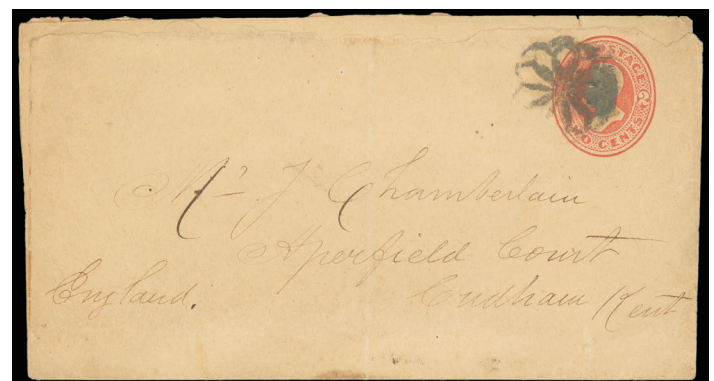 POSTAGE
TWO CENTS
Mr J Chamberlain
Aperfield Court
England. Cudham Kent